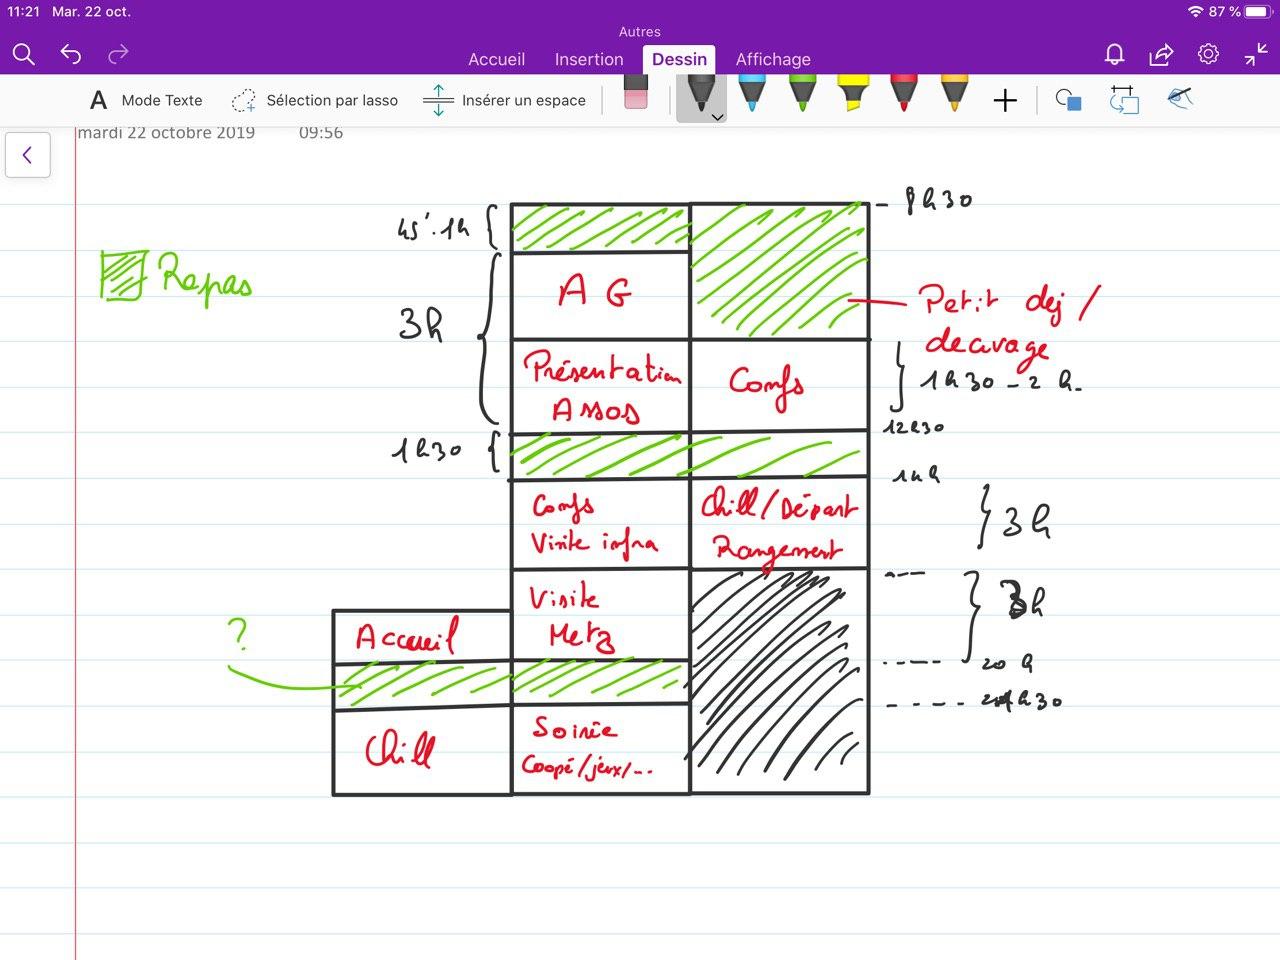 11:21 Mar. 22 oct.
87 %
Autres
Accueil Insertion Dessin Affichage
A Mode Texte Sélection par lasso Insérer un espace
mardi 22 octobre 2019 09:56
8h30
45'-1h
Repas
AG
3h
Petit dej /
decuvage
Présentation
Assos
Confs
1h30-2h.
12h30
1h30
14h
Confs
Visite infra
Chill/Départ
Rangement
3h
Visite
Metz
3h
?
Accueil
20h
21h30
Chill
Soirée
Coopé/jeux/...